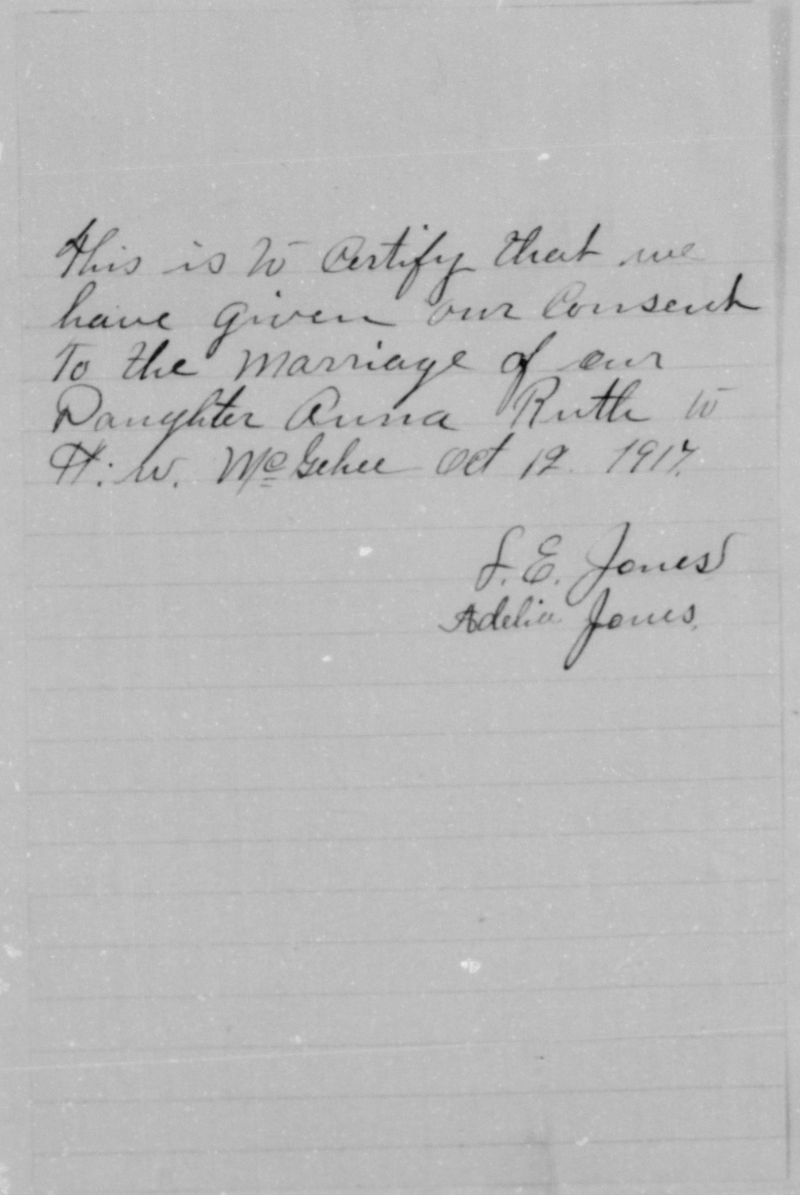 This is to Certify that we
have given our Consent
To the Marriage of our
Daughter Anna Ruth to
H. W. McGehee Oct 12 1917.
S. E. Jones
Adelia Jones.